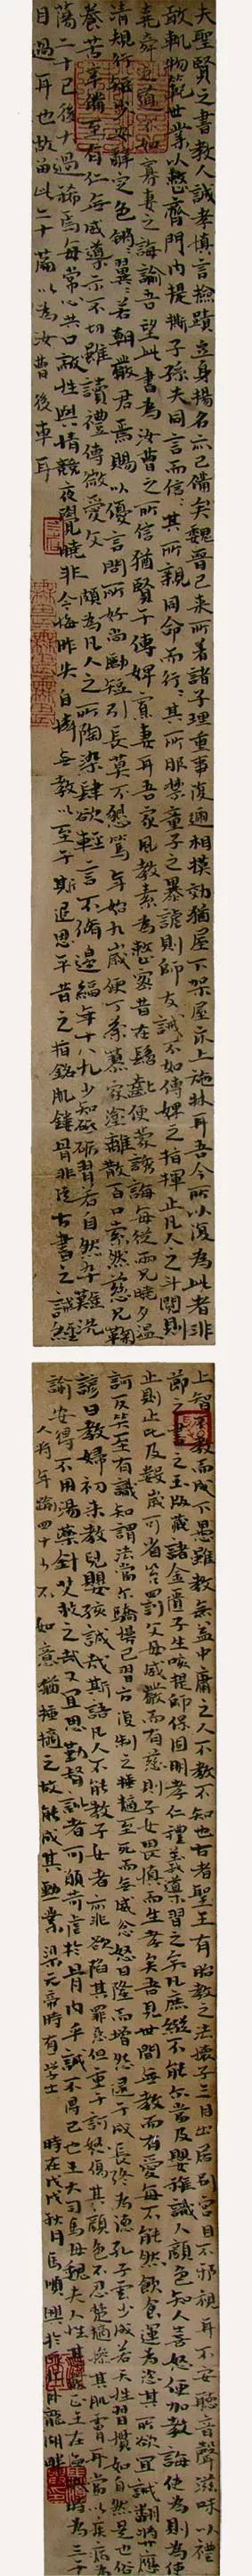 夫聖賢之書教人誠孝慎言檢蹟立身揚名亦已備矣魏晉已來所著諸子理重事復遞相模効猶屋下架屋床上施牀耳吾今所以復為此者非
敢軌物範世業以整齊門內提撕子孫夫同言而信信其所親同命而行行其所服禁童子之暴謔則師友誡不如傅婢之指揮止凡人之鬥鬩則
堯舜之道不如寡妻之誨諭吾望此書為汝曹之所信猶賢于傅婢寡妻耳吾家風教素為整密昔在齠齔便蒙誘誨每從兩兄曉夕溫
清規行矩步安辭定色鏘鏘翼翼若朝嚴君焉賜以優言問所好尚勵短引長莫不懇篤年始九歲便丁荼蓼家塗離散百口索然慈兄鞠
養苦辛備至有仁無威導示不切雖讀禮傳微愛文頗為凡人之所陶染肆欲輕言不脩邊幅年十八九少知砥礪習若自然卒難洗
蕩二十已後大過稀焉每常心共口敵性與情競夜覺曉非今悔昨失自憐無教以至于斯追思平昔之指銘肌鏤骨非徒古書之誡經
目過耳也故留此二十篇以為汝曹後車耳
上智不教而成下愚雖教無益中庸之人不教不知也古者聖王有胎教之法懷子三月出居別宮目不邪視耳不妄聽音聲滋味以禮
節之書之玉版藏諸金匱子生咳提師保固明孝仁禮義導習之矣凡庶縱不能爾當及嬰稚識人顏色知人喜怒便加教誨使為則為使
止則止比及數歲可省笞罰父母威嚴而有慈則子女畏慎而生孝矣吾見世間無教而有愛每不能然飲食運為恣其所欲宜誡翻獎應
訶反笑至有識知謂法當爾驕慢已習方復制之捶撻至死而無威忿怒日隆而增怨逮于成長終為德孔子云少成若天性習慣如自然是也俗
諺曰教婦初來教兒嬰孩誠哉斯語凡人不能教子女者亦非欲陷其罪惡但重于訶怒傷其顏色不忍楚撻慘其肌膚耳當以疾病為
諭安得不用湯藥針艾救之哉又宜思勤督訓者可願苛虐於骨肉乎誠不得已也王大司馬母魏夫人性甚嚴正王在湓城時為三千
人將年踰四十少不如意猶捶撻之故能成其勳業梁元帝時有學士 時在戊戌秋月馬順興於臥龍湖畔